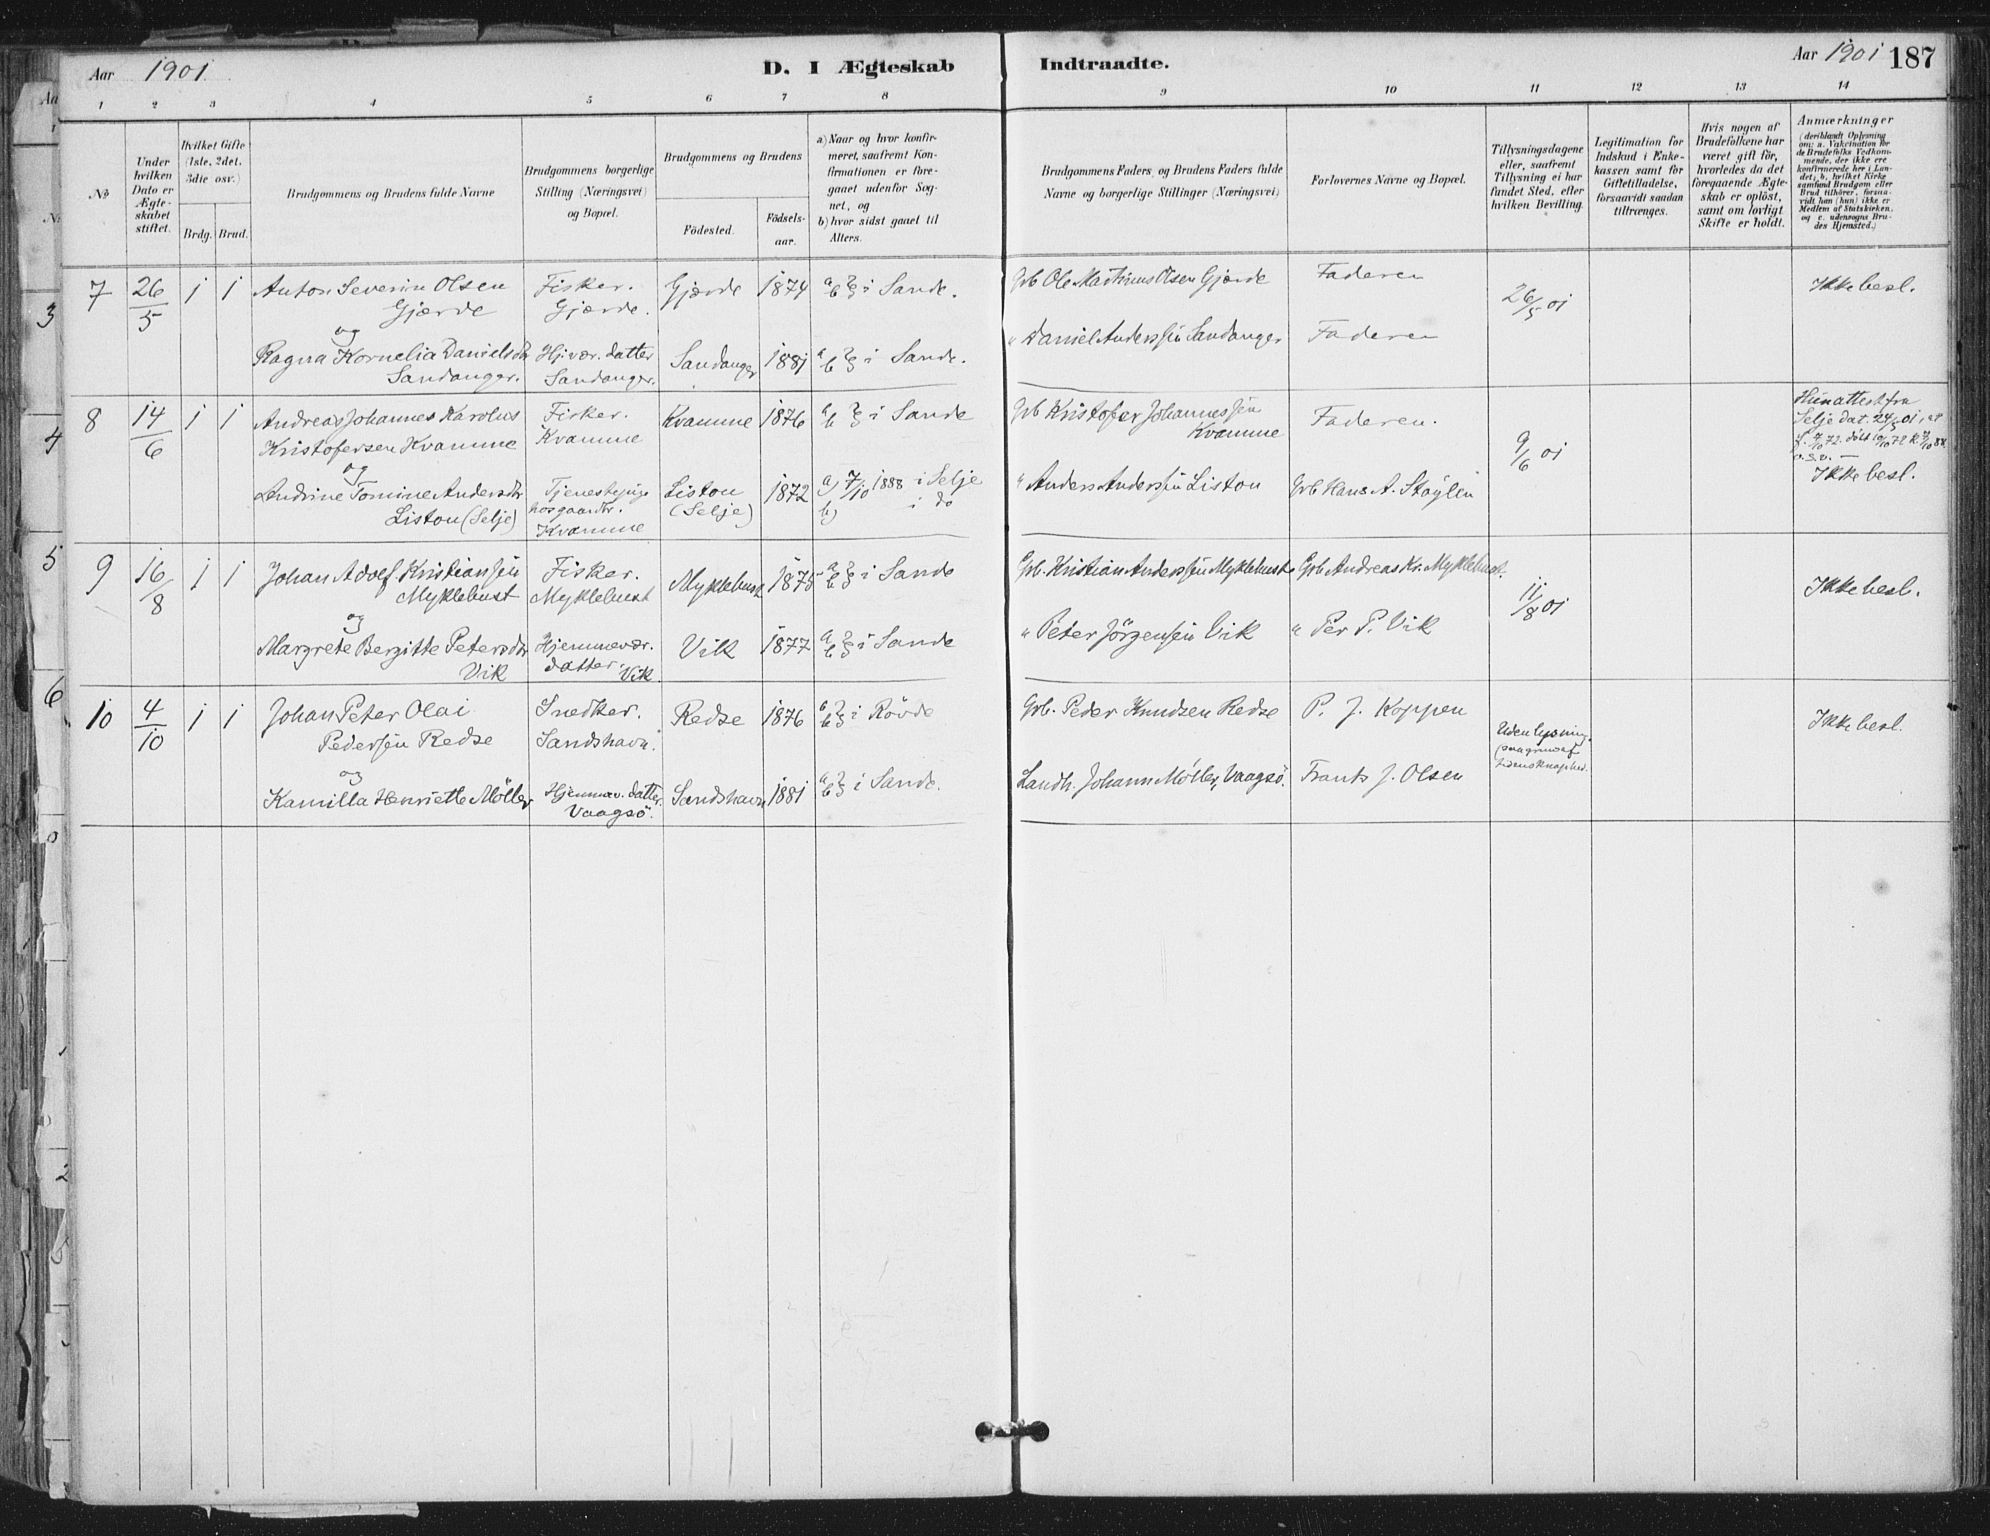 Aar 1901
D. I Ægteskab Indtraadte.
Aar 1901 187
1 2 3 4 5 6 7 8 9 10 11 12 13 14
No
Under hvilken Dato er Ægteskabet stiftet.
Hvilket Gifte (1ste, 2det, 3die osv.)
Brdg. Brud.
Brudgommens og Brudens fulde Navne
Brudgommens borgerlige Stilling (Næringsvei) og Bopæl.
Brudgommens og Brudens
Födested.
Födselsaar.
a) Naar og hvor konfirmeret, saafremt Konfirmationen er foregaaet udenfor Sognet, og
b) hvor sidst gaaet til Alters.
Brudgommens Faders og Brudens Faders fulde Navne og borgerlige Stillinger (Næringsvei)
Forlovernes Navne og Bopæl.
Tillysningsdagene eller, saafremt Tillysning ei har fundet Sted, efter hvilken Bevilling.
Legitimation for Indskud i Enkekassen samt for Giftetilladelse, forsaavidt saadan tiltrænges.
Hvis nogen af Brudefolkene har været gift för, hvorledes da det foregaaende Ægteskab er oplöst, samt om lovligt Skifte er holdt.
Anmærkninger (deriblandt Oplysning om: a. Vakcination for de Brudefolks Vedkommende, der ikke ere konfirmerede her i Landet, b. hvilket Kirkesamfund Brudgom eller Brud tilhörer, forsaavidt han (hun) ikke er Medlem af Statskirken, og c. udensogns Brudes Hjemsted.)
7 26/5 1 1 Anton Severin Olsen Fisker. Gjærde 1874 a b i Sande. Grb Ole Mathinus Olsen Gjærde Faderen 26/5 01 Ikke besl.
Gjærde Gjærde.
og
Ragna Kornelia Danielsdr Hjvær. datter Sandanger 1881 a b i Sande. " Daniel Anderssen Sandanger Faderen
Sandanger. Sandanger.
8 14/6 1 1 Andreas Johannes Karolus Fisker. Kvamme 1876 a b i Sande Grb Kristofer Johannessen Faderen. 9/6 01 Hun attest fra
Kristofersen Kvamme Kvamme Kvamme Selje dat. 24/5 01, at
og f. 4/10 72. döbt 10/10 72 k. 7/10 88
o.s.v. —
Andrine Tomine Andersdr Tjenestepige Liston 1872 a) 7/10 1888 i Selje " Anders Anderssen Liston Grb Hans A. Stöylen Ikke besl.
Liston (Selje) hos gaardbr. (Selje) b) i do
Kvamme
9 16/8 1 1 Johan Adolf Kristianssen Fisker. Myklebust 1875 a b i Sande Grb. Kristian Anderssen Myklebust Grb Andreas Kr. Myklebust. 11/8 01 Ikke besl.
Myklebust Myklebust
og
Margrete Bergitte Petersdr Hjemmevær. Vik 1877 a b i Sande " Peter Jörgensen Vik " Per P. Vik
Vik datter. Vik
10 4/10 1 1 Johan Peter Olai Snedker. Redse 1876 a b i Rövde Grb. Peder Knudsen Redse P. J. Koppen Uden lysning Ikke besl.
Pederssen Redse Sandshavn. paa grund af
og tidens knaphed.
Kamilla Henriette Möller Hjemmev. datter. Sandshavn 1881 a b i Sande. Landh. Johann Möller, Vaagsö. Frants J. Olsen
Vaagsö.